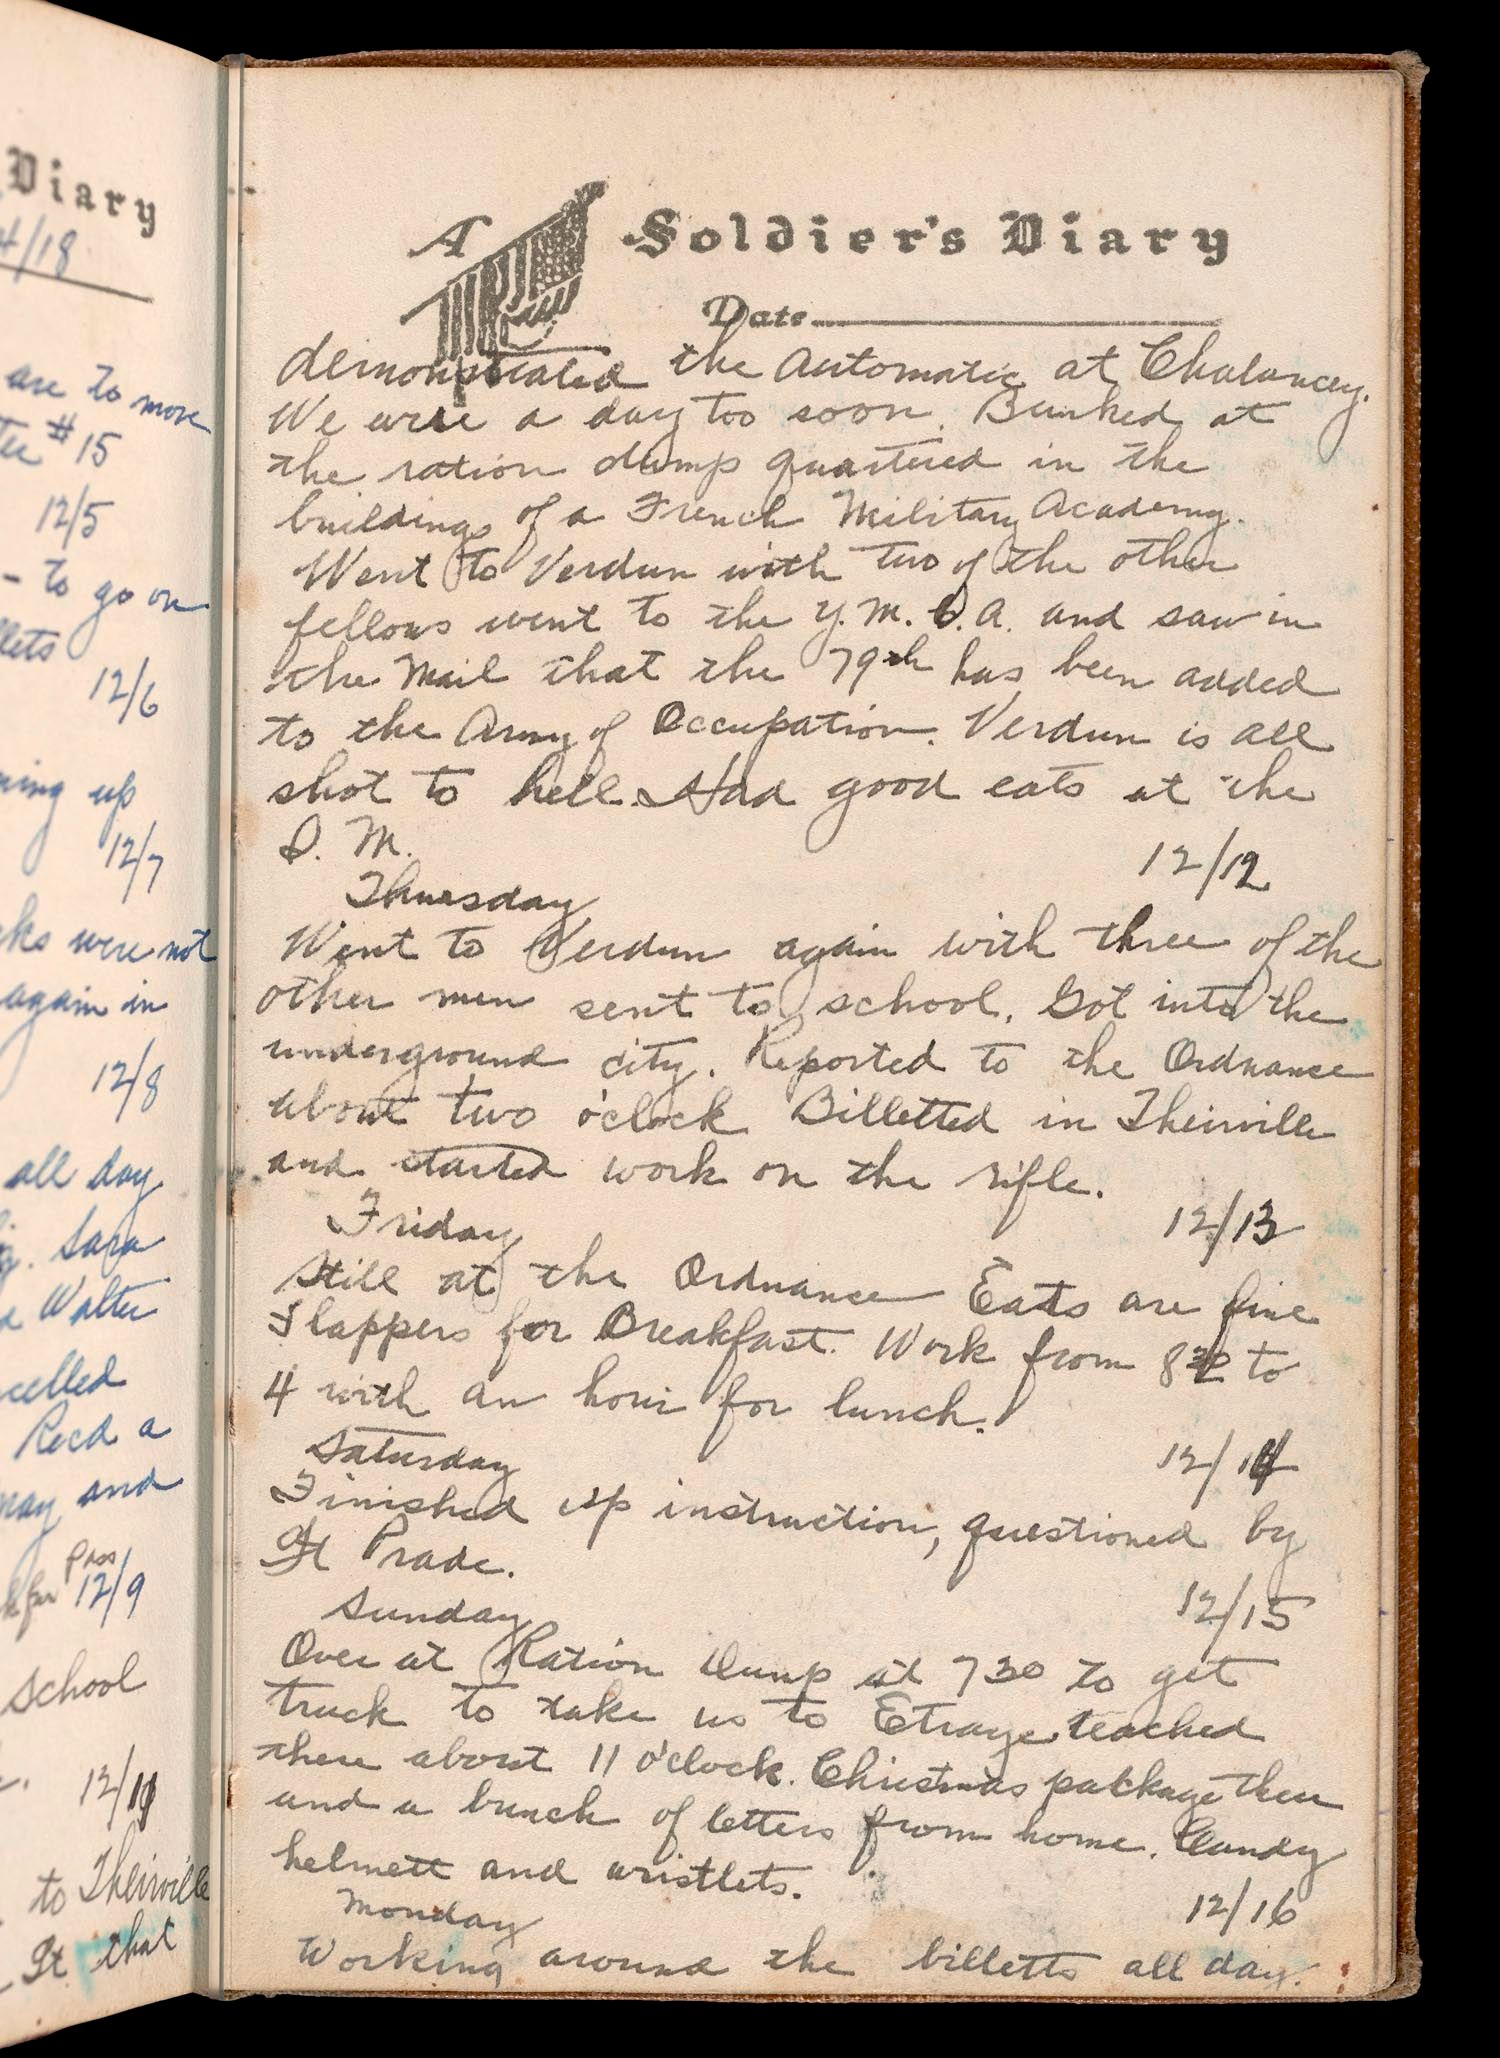 Diary
4/18
are to move
#15
12/5
- to go on
12/6
up
12/7
were not
again in
12/8
all day
Sara
Walter
Recd a
and
Pass
12/9
School
12/11
to Theirville
Lt that
A Soldier's Diary
Date
demonstrated the Automatic at Chalancey.
We were a day too soon. Bunked at
the ration dump quartered in the
buildings of a French Military Academy.
Went to Verdun with two of the other
fellows went to the Y.M.C.A. and saw in
the Mail that the 79th has been added
to the Army of Occupation. Verdun is all
shot to hell. Had good eats at the
D. M.
12/12
Thursday
Went to Verdun again with three of the
other men sent to school. Got into the
underground city. Reported to the Ordnance
about two o'clock Billetted in Theirville
and started work on the rifle.
12/13
Friday
Still at the Ordnance Eats are fine
Flappers for Breakfast. Work from 8 30 to
4 with an hour for lunch.
12/14
Saturday
Finished up instruction, questioned by
Lt Prade.
12/15
Sunday
Over at Ration Dump at 7 30 to get
truck to take us to Etraye reached
there about 11 o'clock. Christmas package there
and a bunch of letters from home. Candy
helmett and wristlets.
12/16
Monday
Working around the billetts all day.